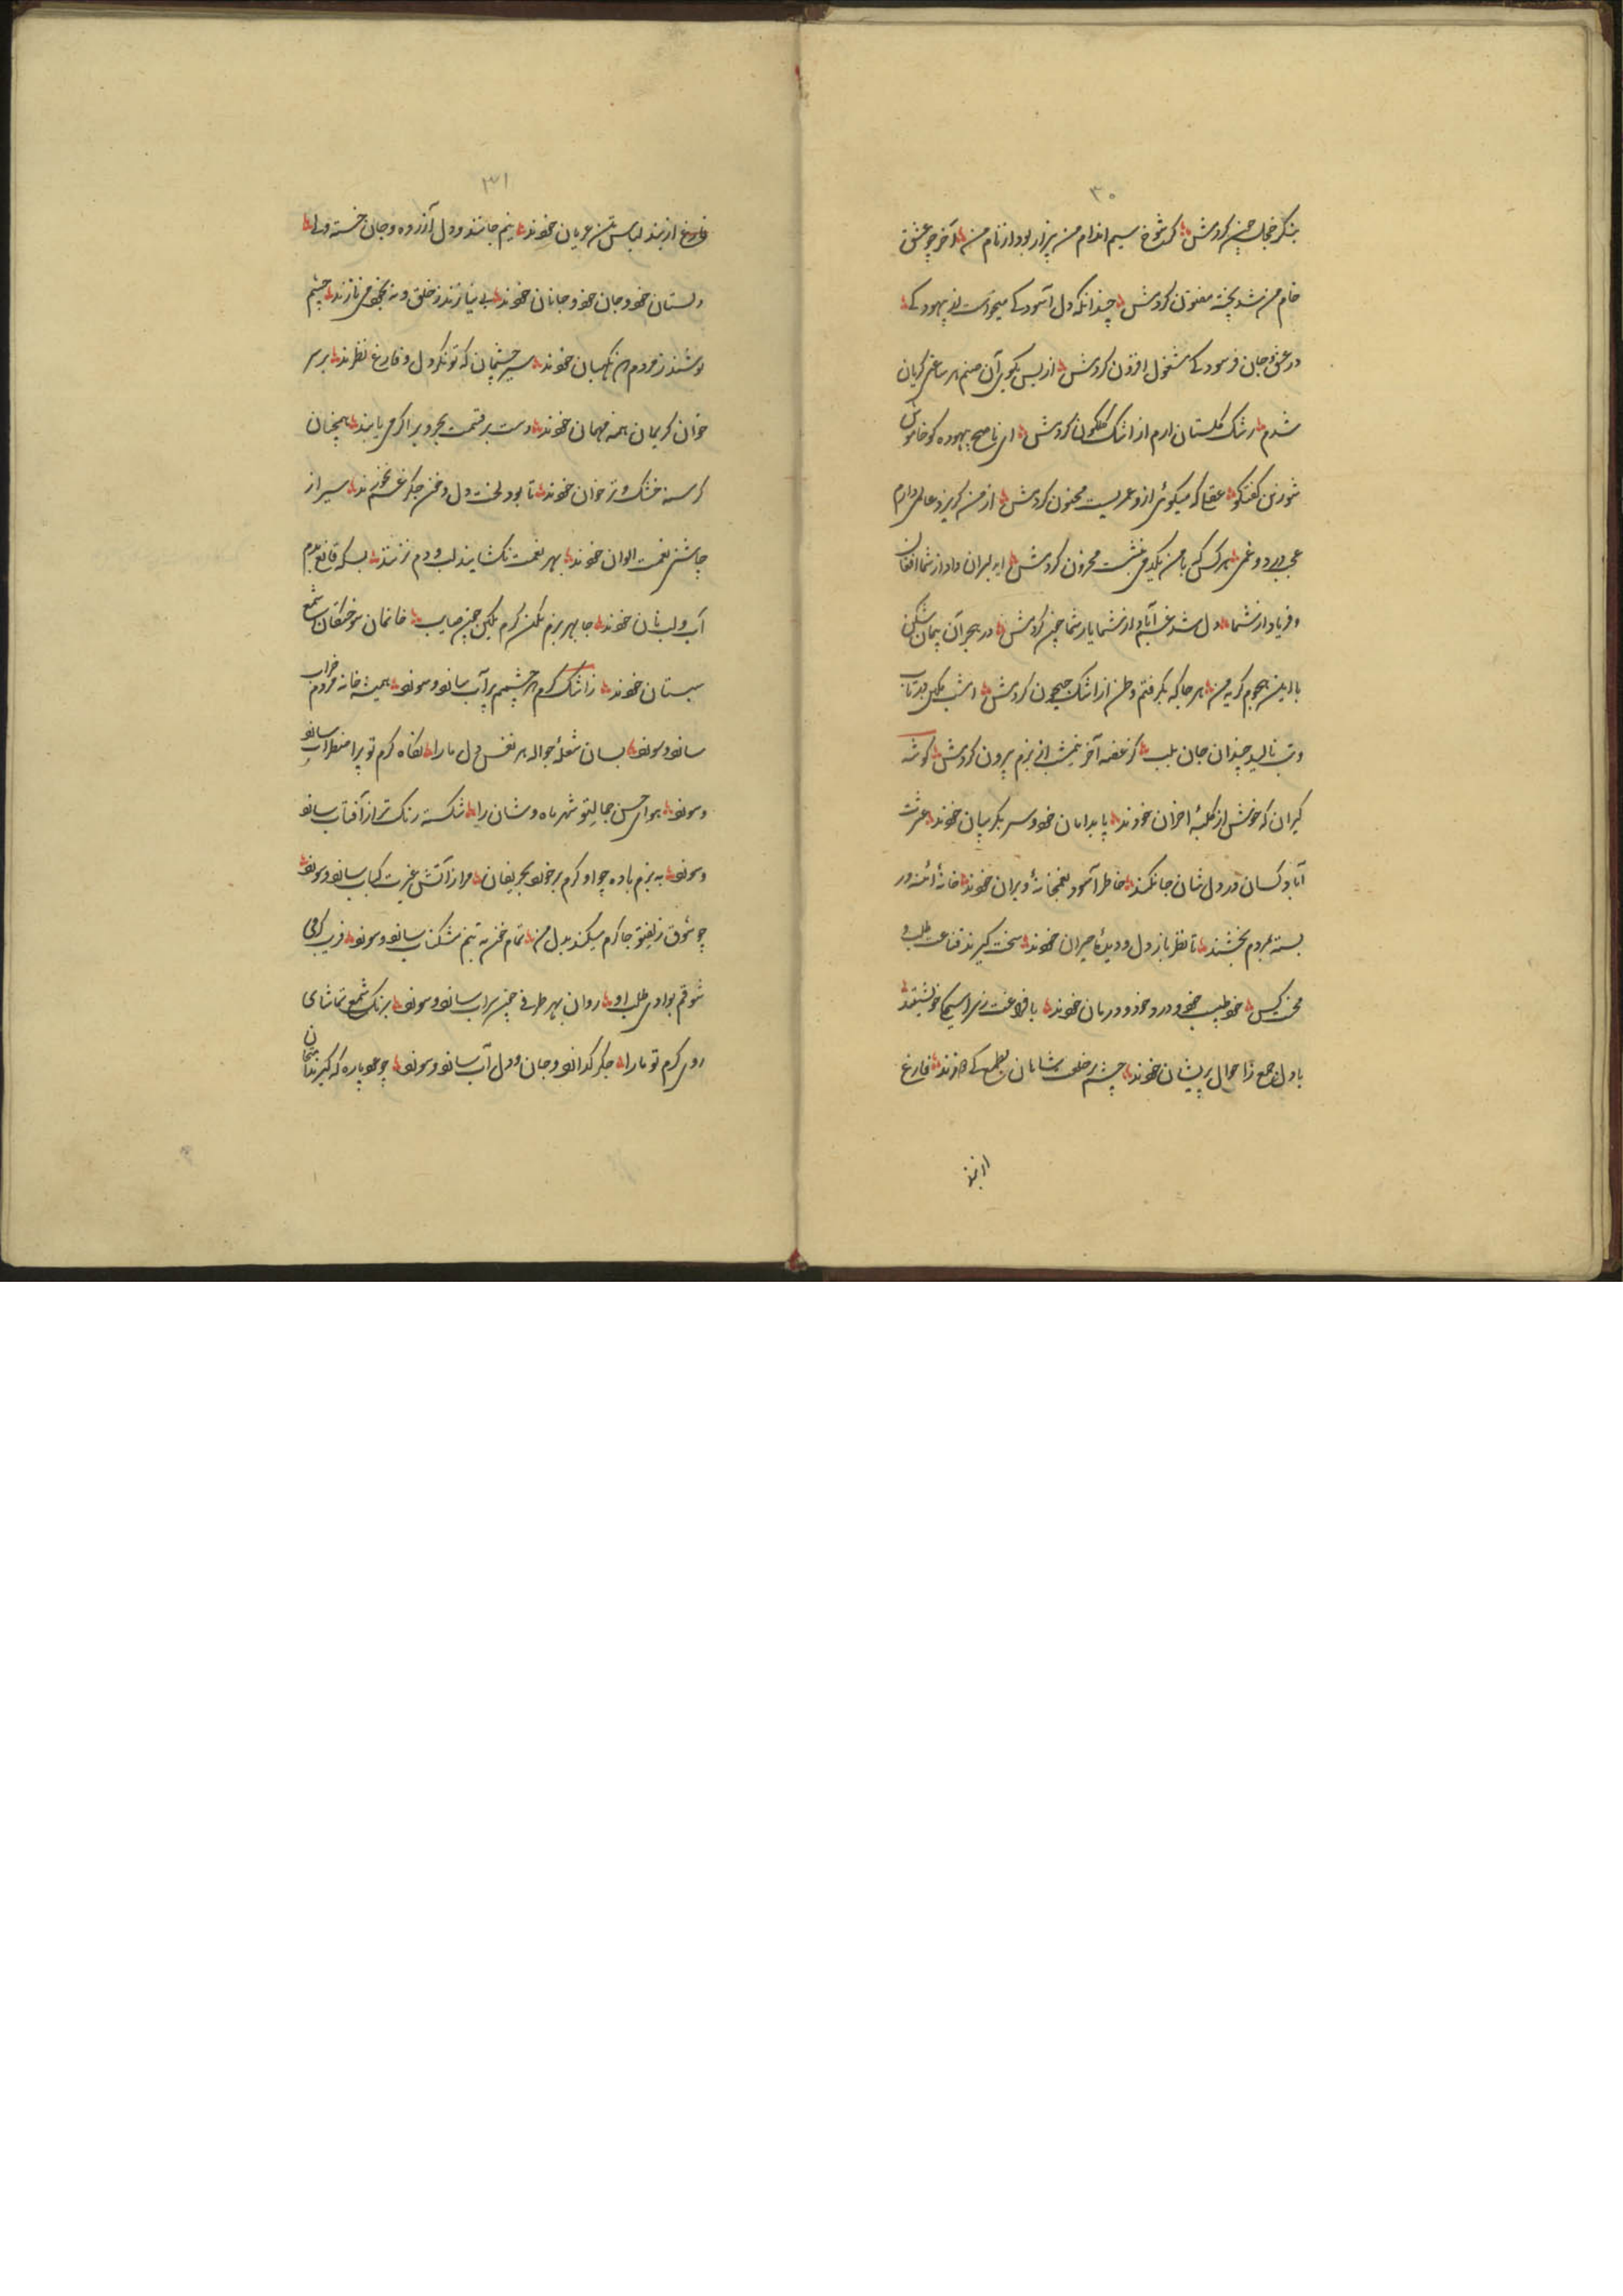 ۳۰
بنگر خجالت چین کردمش ؞ گرت شوخ سیم اندام من بیزار بود از نام من ؞ آخر چو عشق
خام من شد پخته مفتون کردمش ؞ چندانکه دل آسودگی میخواست از بیهودگی ؞
در عشق و جان فرسودگی مشغول افزون کردمش ؞ از بس بکوی آن صنم هر ساعتی گریان
شدم ؞ رشک گلستان ارم از اشک گلگون کردمش ؞ ای ناصح بیهوده گو خاموش
شو زین گفتگو ؞ عقلی که میگوئی ازو عمریست مجنون کردمش ؞ از من گریزد عالمی دارم
عجب درد و غمی ؞ هر کس که با من یکدمی بنشست محزون کردمش ؞ ای دلبران داد از شما افغان
و فریاد از شما ؞ دل شد غم آباد از شما یا رب شما چین کردمش ؞ در هجر آن پیمان شکن
بالید هجوم گریه من ؞ هر جا که بگرفتم وطن از اشک جیحون کردمش ؞ امشب مکین در تاب
و تب نالید چندان جان بلب ؞ کز غصه آخر نیمشب از بزم بیرون کردمش ؞ گوشه
گیران که خوش از کلبهٔ احزان خودند ؞ پا بدامان خود و سر بگریبان خودند ؞ عشرت
آباد کسان در دل شان جا نکند ؞ خاطر آسوده بغمخانهٔ ویران خودند ؞ خانهٔ آئنه در
بسته بمردم بخشند ؞ تا نظر باز دل و دیدهٔ حیران خودند ؞ سخت گیرند قناعت طلب و
محنت کیس ؞ خود طبیب خود و درد خود و درمان خودند ؞ با فراغت ز مسیحا خویشتند ؞
با دل جمع ز احوال پریشان خودند ؞ چشم بر خلعت شاهان بطمع کی دوزند ؞ فارغ
از بند
۳۱
فارغ از بند لباس تن عریان خودند ؞ نیم جانند و دل آزرده و جان خسته ولی ؞
دلستان خود و جان خود و جانان خودند ؞ بی نیازند ز خلق و بخود می نازند ؞ چشم
پوشند ز مردم همه نگهبان خودند ؞ سیر چشمان که تونگر دل و فارغ نظرند ؞ بر سر
خوان کریمان همه مهمان خودند ؞ دست بر قسمت بحر و بر اگر می یابند ؞ همچنان
گرسنه خشک و تر خوان خودند ؞ تا بود لخت دل و خون جگر غم نخورند ؞ سیر از
چاشنی نعمت الوان خودند ؞ بهر نعمت نگشایند لب و دم نزنند ؞ بسکه قانع بدم
آب و لب نان خودند ؞ جا بهر بزم مکن گرم مکین چون صایب ؞ خانمان سوختگان شمع
شبستان خودند ؞ ز اشک گرم هر چشمم پر آب سانو و سونو ؞ همیشه خانه مردم خراب
سانو و سونو ؞ بسان شعلهٔ جواله هر نفس دل ما را ؞ نگاه گرم تو پر اضطراب سانو
و سونو ؞ هوای حسن جمالتو شهر ماه وشان را ؞ شکسته رنگ تر از آفتاب سانو
و سونو ؞ به بزم باده چو او گرم بر خورد بحریفان ؞ مرا ز آتش غیرت کباب سانو و سونو ؞
چو شوق زلفتو جا گرم میکند بدل من ؞ تمام خون به تنم مشکناب سانو و سونو ؞
شوقم بوادی طلب او ؞ روان بهر طرفی چون سراب سانو و سونو ؞ برنگ شمع تماشای
روی گرم تو ما را ؞ جگر گدازد و جان و دل آب سانو و سونو ؞ چو مو پاره که گیرند